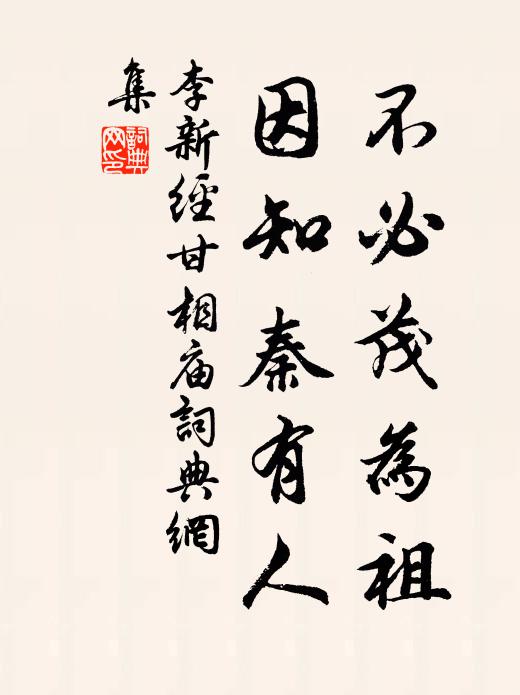 不必茂為祖
因知秦有人
李新經甘相庙詞典網
集
詞典
网印